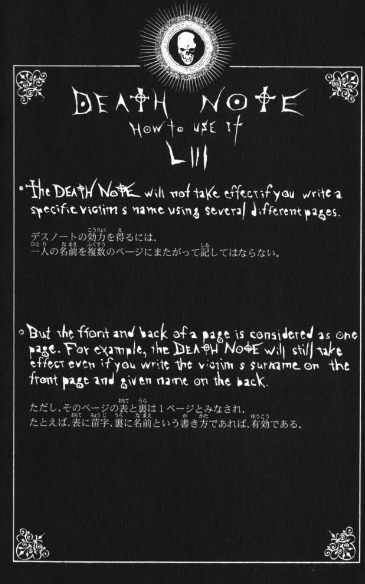 DEATH NOTE
HOW TO USE IT
LIII
The DEATH NOTE will not take effect if you write a
specific victim s name using several different pages.
デスノートの効力を得るには、
一人の名前を複数のページにまたがって記してはならない。
But the front and back of a page is considered as one
page. For example, the DEATH NOTE will still take
effect even if you write the victim s surname on the
front page and given name on the back.
ただし、そのページの表と裏は1ページとみなされ、
たとえば、表に苗字、裏に名前という書き方であれば、有効である。